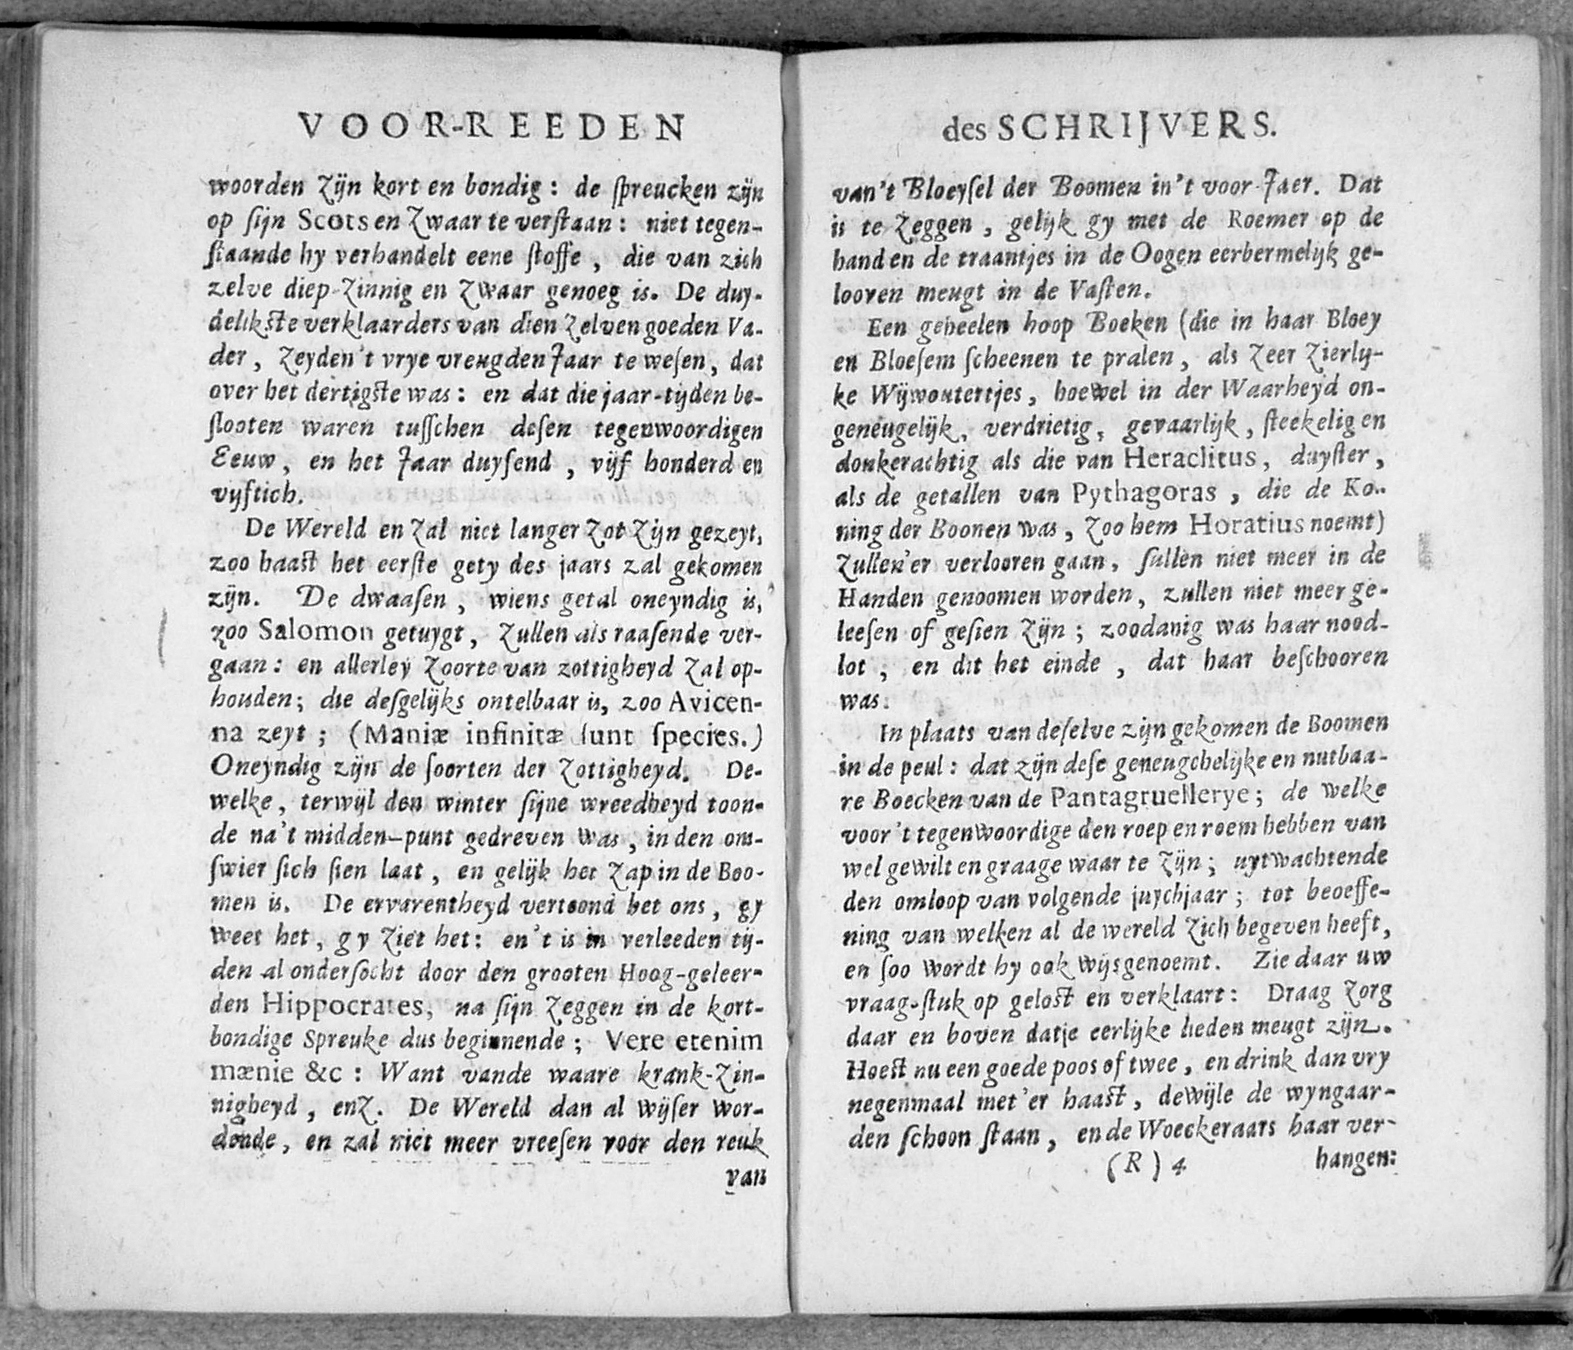 VOOR-REEDEN
woorden zijn kort en bondig: de spreucken zijn
op sijn Scots en zwaar te verstaan: niet tegen-
staande hy verhandelt eene stoffe, die van zich
zelve diep-zinnig en zwaar genoeg is. De duy-
delikste verklaarders van dien zelven goeden Va-
der, zeyden't vrye vreugden Jaar te wesen, dat
over het dertigste was: en dat die jaar-tijden be-
slooten waren tusschen desen tegenwoordigen
Eeuw, en het Jaar duysend, vijf honderd en
vyftich.
De Wereld en zal niet langer zot zijn gezeyt,
zoo haast het eerste gety des jaars zal gekomen
zijn. De dwaasen, wiens getal oneyndig is,
zoo Salomon getuygt, zullen als raasende ver-
gaan: en allerley zoorte van zottigheyd zal op-
houden; die desgelijks ontelbaar is, zoo Avicen-
na zeyt; (Maniæ infinitæ sunt species.)
Oneyndig zijn de soorten der zottigheyd. De-
welke, terwijl den winter sijne wreedheyd toon-
de na't midden-punt gedreven was, in den om-
swier sich sien laat, en gelijk het zap in de Boo-
men is. De ervarentheyd vertoond het ons, gy
weet het, gy ziet het: en't is in verleeden tij-
den al ondersocht door den grooten Hoog-geleer-
den Hippocrates, na sijn zeggen in de kort-
bondige Spreuke dus beginnende; Vere etenim
mænie &c: Want vande waare krank-zin-
nigheyd, enz. De Wereld dan al wijser wor-
dende, en zal niet meer vreesen voor den reuk
van
des SCHRIJVERS.
van't Bloeysel der Boomen in't voor-Jaer. Dat
is te zeggen, gelijk gy met de Roemer op de
hand en de traantjes in de Oogen eerbermelijk ge-
looven meugt in de Vasten.
Een geheelen hoop Boeken (die in haar Bloey
en Bloesem scheenen te pralen, als zeer zierly-
ke Wijwoutertjes, hoewel in der Waarheyd on-
geneugelijk, verdrietig, gevaarlijk, steekelig en
donkerachtig als die van Heraclitus, duyster,
als de getallen van Pythagoras, die de Ko-
ning der Boonen was, zoo hem Horatius noemt)
zullen'er verlooren gaan, sullen niet meer in de
Handen genoomen worden, zullen niet meer ge-
leesen of gesien zijn; zoodanig was haar nood-
lot, en dit het einde, dat haar beschooren
was.
In plaats van deselve zijn gekomen de Boomen
in de peul: dat zijn dese geneugchelijke en nutbaa-
re Boecken van de Pantagruellerye; de welke
voor't tegenwoordige den roep en roem hebben van
wel gewilt en graage waar te zijn; uytwachtende
den omloop van volgende juychjaar; tot beoeffe-
ning van welken al de wereld zich begeven heeft,
en soo wordt hy ook wijs genoemt. Zie daar uw
vraag-stuk op gelost en verklaart: Draag zorg
daar en boven datje eerlijke lieden meugt zijn.
Hoest nu een goede poos of twee, en drink dan vry
negenmaal met'er haast, dewijle de wyngaar-
den schoon staan, en de Woeckeraars haar ver-
(R) 4 hangen: